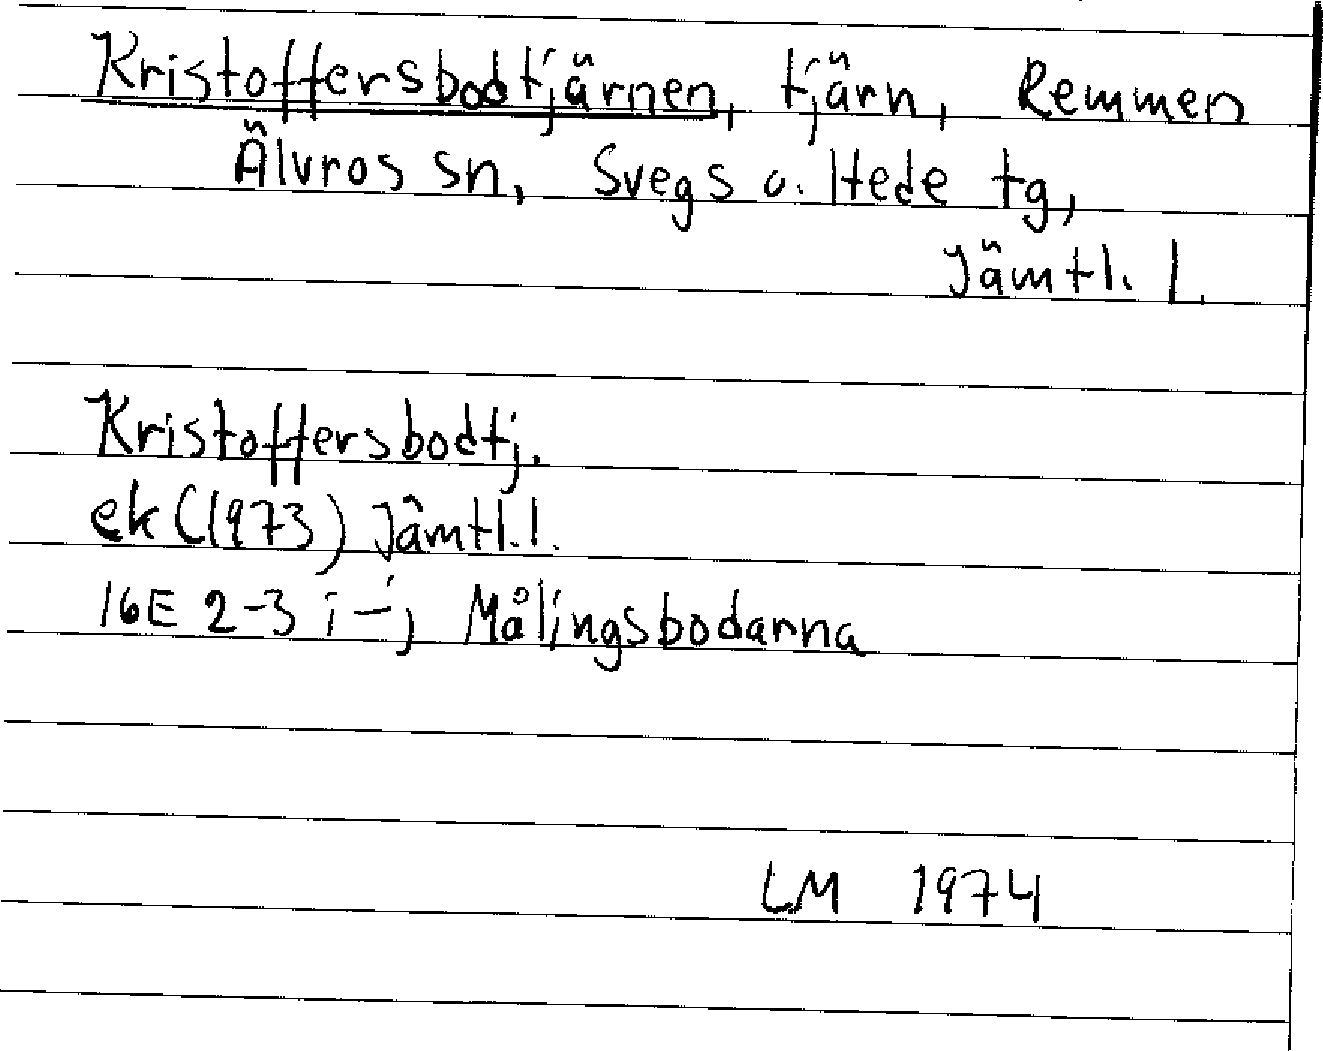 Kristoffersbodtjärnen, tjärn, Remmen
Älvros sn, Svegs o. Hede tg,
Jämtl. l.
Kristoffersbodtj.
ek (1973) Jämtl. l.
16E 2-3 i-j Målingsbodarna
LM 1974